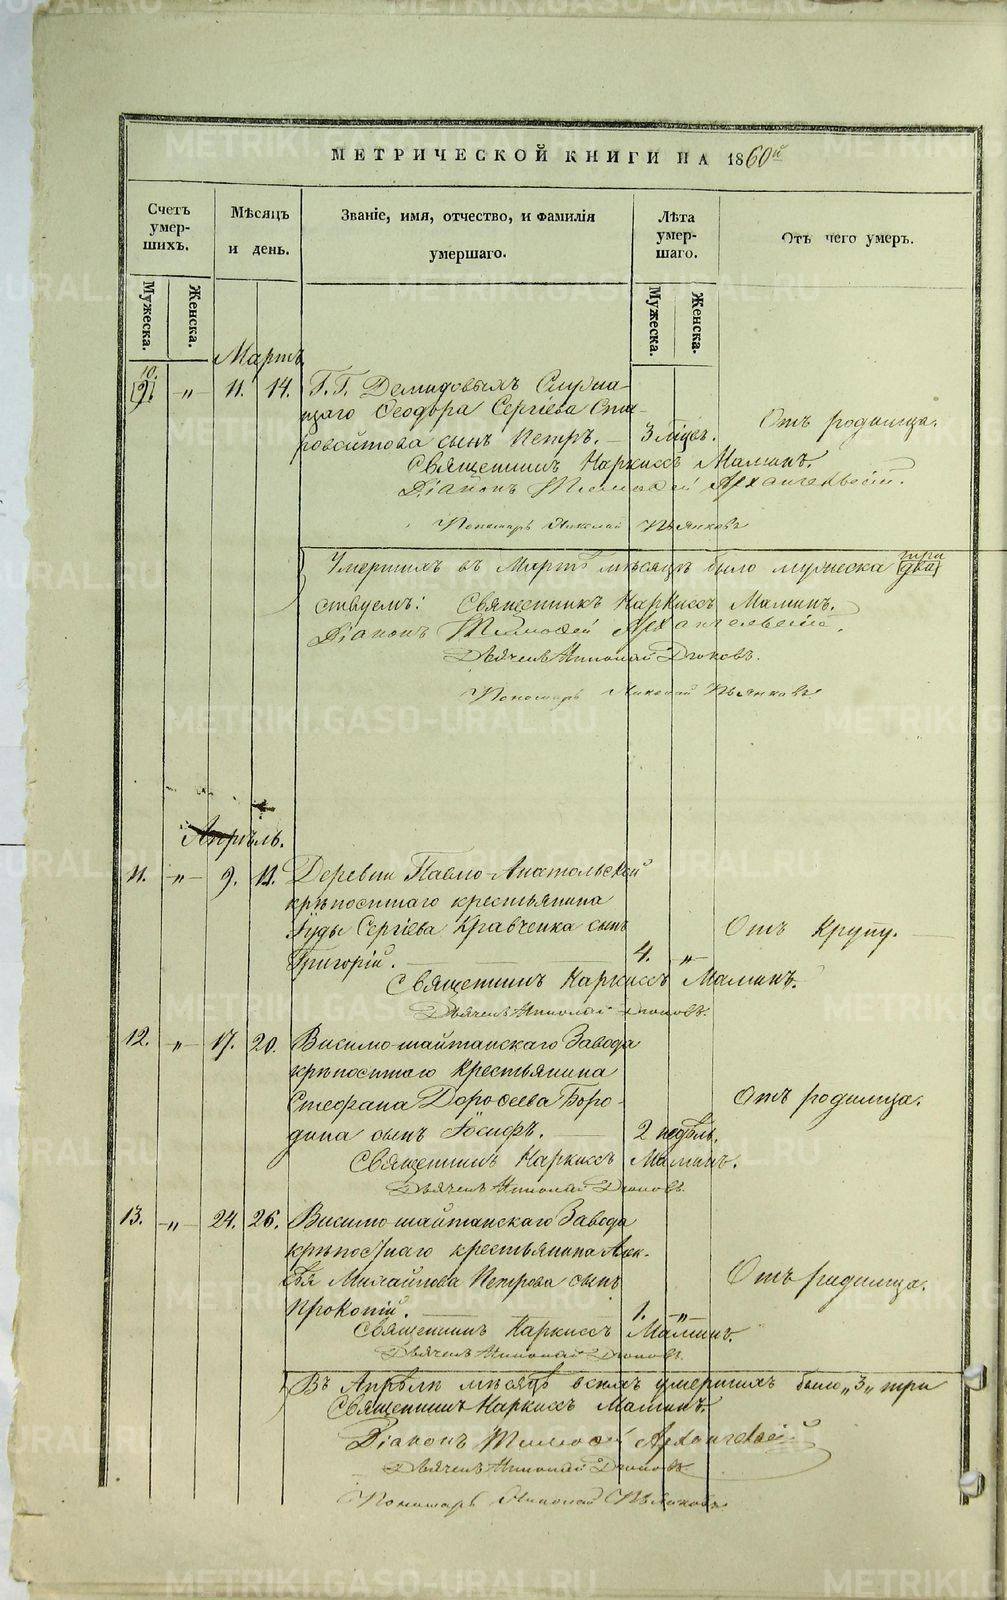 МЕТРИЧЕСКОЙ КНИГИ НА 1860й
Счетъ умер-шихъ.
Мѣсяцъ и день.
Званіе, имя, отчество, и фамилія умершаго.
Лѣта умер-шаго.
Отъ чего умеръ.
Мужеска.
Женска.
Мужеска.
Женска.
Мартъ
10.
9. „ 11. 14. Г.Г. Демидовыхъ Служа-
щаго Ѳеодора Сергѣева
сынъ Петръ. — 3 мѣцъ. Отъ родимца.
Священникъ Наркиссъ Маминъ.
Діаконъ Тимоѳей Архангельскій.
Пономарь Николай Пьянковъ
Умершихъ въ Мартѣ мѣсяцѣ было мужеска два три
Священникъ Наркиссъ Маминъ.
Діаконъ Тимоѳей Архангельскій.
Дьячекъ Николай
Пономарь Николай Пьянковъ
Апрѣль.
11. „ 9. 11. Деревни Павло-Анатольской
крѣпостнаго крестьянина
Іуды Сергѣева Кравченка сынъ
Григорій. — 4. „ Отъ Крупу.
Священникъ Наркиссъ Маминъ.
Дьячекъ Николай
12. „ 17. 20. Висимо-шайтанскаго Завода
крѣпостнаго крестьянина
Стефана Дороѳеева Боро-
дина сынъ Іосифъ. — 2 недѣль. Отъ родимца.
Священникъ Наркиссъ Маминъ.
Дьячекъ Николай
13. „ 24. 26. Висимо-шайтанскаго Завода
крѣпостнаго крестьянина Алек-
сѣя Михайлова Петрова сынъ
Прокопій. — 1. „ Отъ родимца.
Священникъ Наркиссъ Маминъ.
Дьячекъ Николай
Въ Апрѣлѣ мѣсяцѣ всѣхъ умершихъ было „3„ три
Священникъ Наркиссъ Маминъ.
Діаконъ Тимоѳей Архангельскій
Дьячекъ Николай
Пономарь Николай Пьянковъ
METRIKI.GASO-URAL.RU